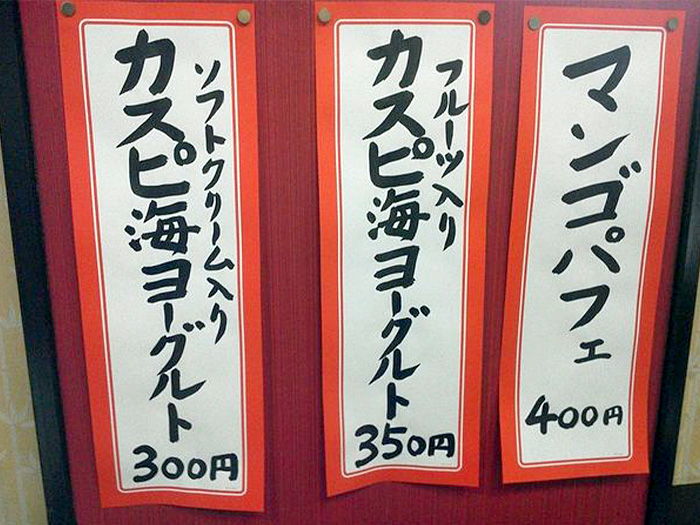 マンゴパフェ
400円
フルーツ入り
カスピ海ヨーグルト
350円
ソフトクリーム入り
カスピ海ヨーグルト
300円